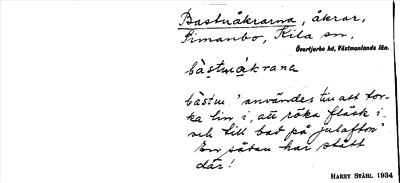 Bastuåkrarna, åkrar,
Simanbo, Kila sn,
Övertjurbo hd, Västmanlands län.
bàstuåkrana
bàstu "användes till att tor-
ka lin i, att röka fläsk i
och till bad på julafton"
En sådan har stått
där!
HARRY STÅHL 1934